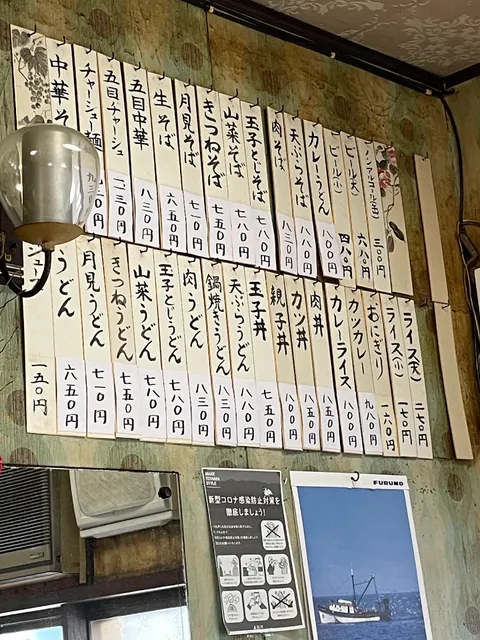 中華そ
チャーシュー麺
五目チャーシュー
五目中華 八三〇円
生そば 六五〇円
月見そば 七一〇円
きつねそば 七五〇円
山菜そば 七八〇円
玉子とじそば 七八〇円
肉そば 八三〇円
天ぷらそば
カレーうどん 八〇〇円
ビール(小) 四八〇円
ビール(大) 六八〇円
ノンアルコール 三〇〇円
一五〇円
うどん 六五〇円
月見うどん 七一〇円
きつねうどん 七五〇円
山菜うどん 七八〇円
玉子とじうどん 七八〇円
肉うどん 八三〇円
鍋焼きうどん
天ぷらうどん
玉子丼 七五〇円
親子丼 八〇〇円
カツ丼 八五〇円
肉丼 八五〇円
カレーライス 八〇〇円
カツカレー 九八〇円
おにぎり 一六〇円
ライス(小) 一七〇円
ライス(大) 二七〇円
新型コロナ感染防止対策を
徹底しましょう!
FURUNO